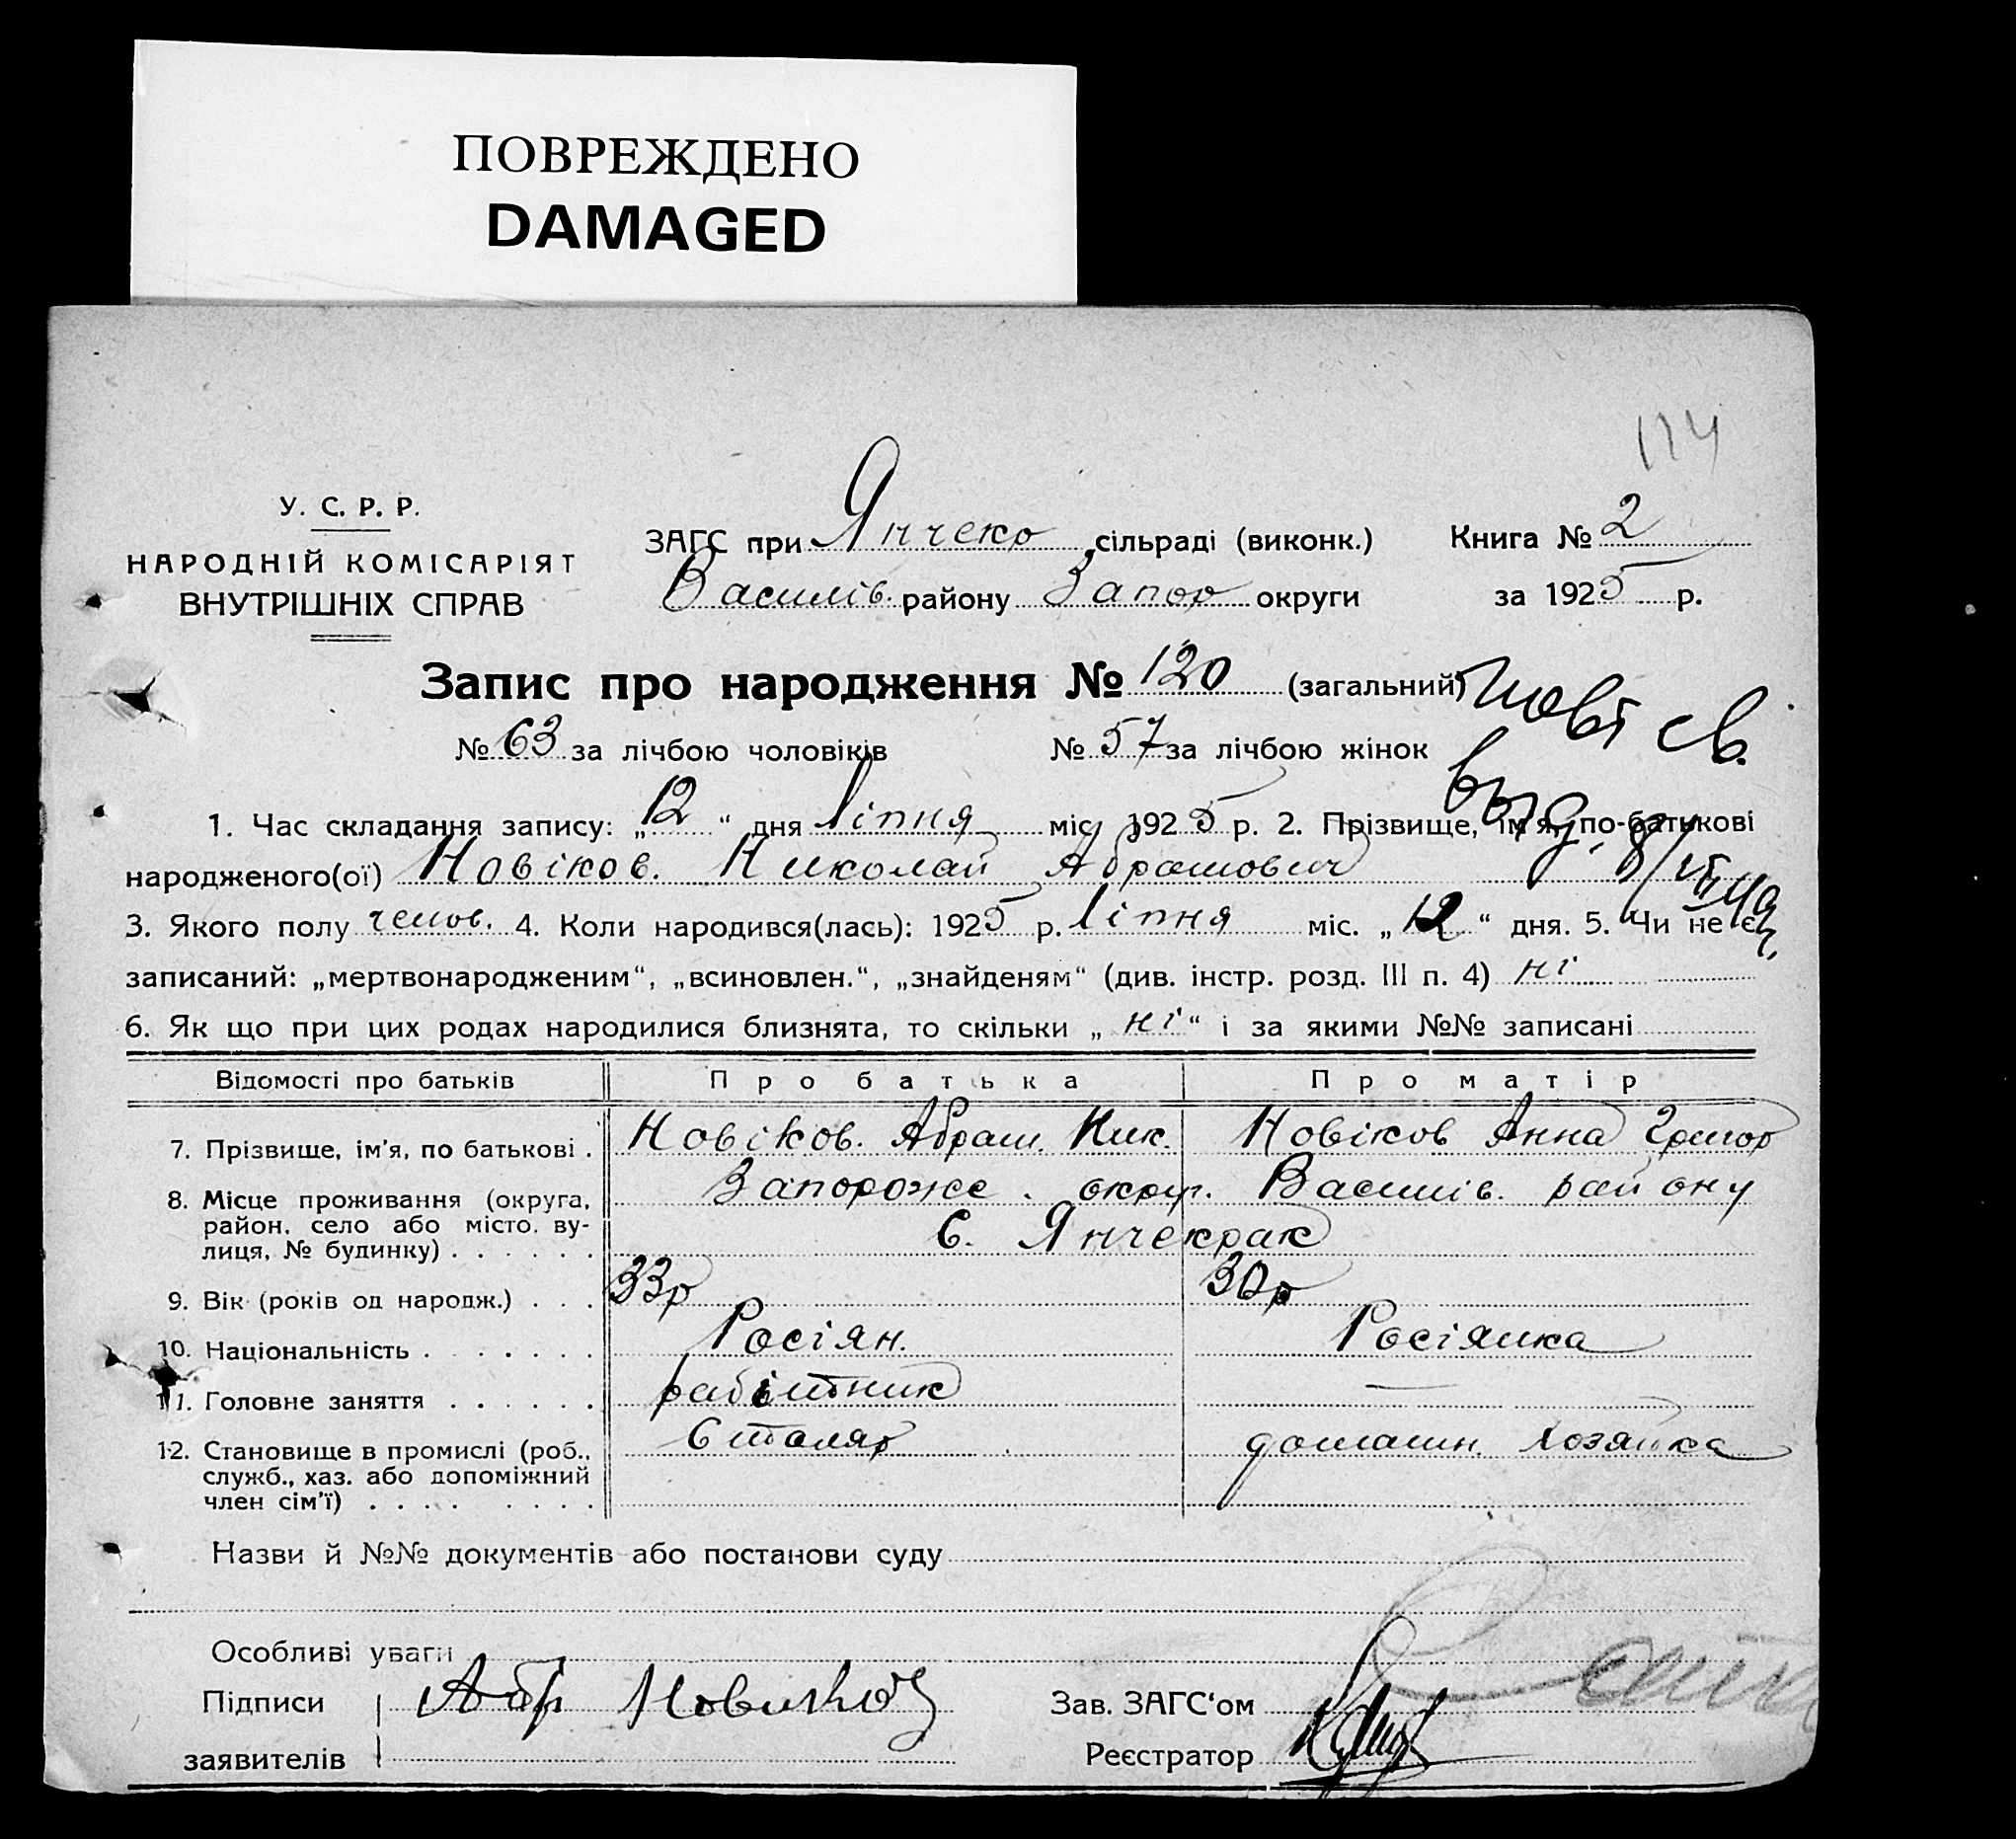 ПОВРЕЖДЕНО
DAMAGED
114
У. С. Р. Р.
НАРОДНІЙ КОМІСАРІЯТ
ВНУТРІШНІХ СПРАВ
ЗАГС при Янчекр сільраді (виконк.)
Василів. району Запор округи
Книга № 2
за 1925 р.
Запис про народження № 120 (загальний)
№ 63 за лічбою чоловіків № 57 за лічбою жінок
повт св.
выд.
1. Час складання запису: „12“ дня ліпня міс 1925 р. 2. Прізвище, ім'я, по-батькові
народженого(ої) Новіков. Николай Абрамович
3. Якого полу челов. 4. Коли народився(лась): 1925 р. ліпня міс. „12“ дня. 5. Чи не є
записаний: „мертвонародженим“, „всиновлен.“, „знайденям“ (див. інстр. розд. III п. 4) ні
6. Як що при цих родах народилися близнята, то скільки „ні“ і за якими №№ записані
Відомості про батьків Про батька Про матір
7. Прізвище, ім'я, по батькові . Новіков. Абрам. Ник. Новіков Анна Григор
8. Місце проживання (округа, район, село або місто, ву-лиця, № будинку) . . . . . . Запорожс. округ. Василів. району
С. Янчекрак
9. Вік (років од народж.) . . . 33р 30р
10. Національність . . . . . . Росіян. Росіянка
11. Головне заняття . . . . . . рабітник —
12. Становище в промислі (роб., служб., хаз. або допоміжний член сім'ї) . . . . . . . . Столяр домашн. хозяйка
Назви й №№ документів або постанови суду
Особливі уваги
Підписи заявителів Абр Новиков
Зав. ЗАГС'ом
Реєстратор